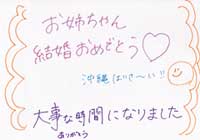 お姉ちゃん
結婚おめでとう♡
沖縄ばんざ〜い!!
大事な時間になりました
ありがとう